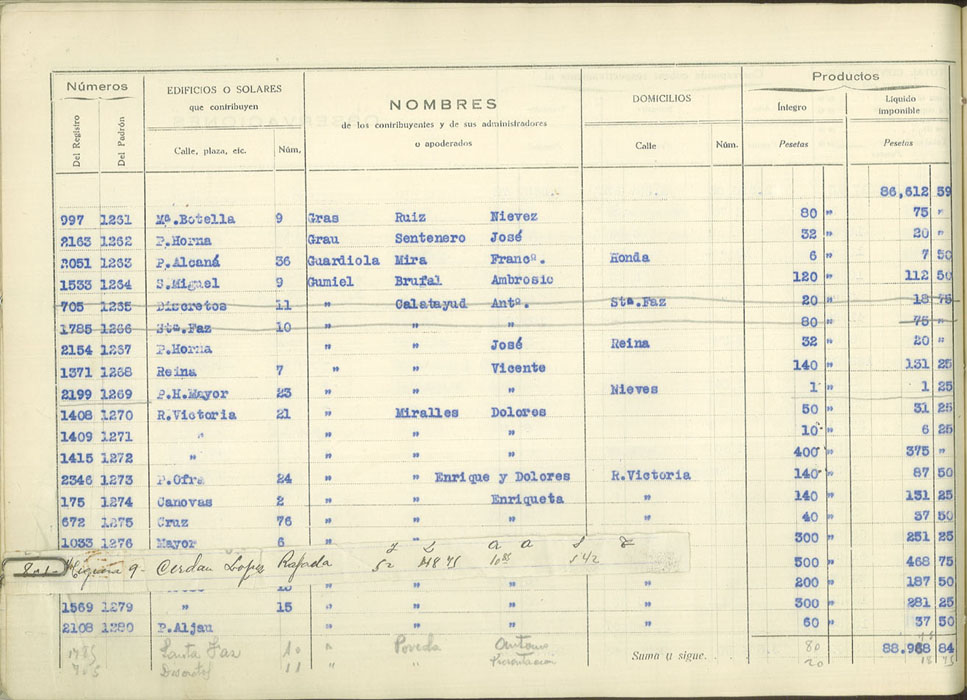 Números EDIFICIOS O SOLARES que contribuyen NOMBRES de los contribuyentes y de sus administradores o apoderados DOMICILIOS Productos
Del Registro Del Padrón Calle, plaza, etc. Núm. Calle Núm. Íntegro Pesetas Líquido imponible Pesetas
86,612 59
997 1261 Mª.Botella 9 Gras Ruiz Nievez 80 " 75 "
2163 1262 P.Horna Grau Sentenero José 32 " 20 "
2051 1263 P.Alcaná 36 Guardiola Mira Francº. Honda 6 " 7 50
1533 1264 S.Miguel 9 Gumiel Brufal Ambrosio 120 " 112 50
705 1265 Discretos 11 " Calatayud Antº. Stª.Faz 20 " 18 75
1785 1266 Stª.Faz 10 " " " 80 " 75 "
2154 1267 P.Horna " " José Reina 32 " 20 "
1371 1268 Reina 7 " " Vicente 140 " 131 25
2199 1269 P.H.Mayor 23 " " " Nieves 1 " 1 25
1408 1270 R.Victoria 21 " Miralles Dolores 50 " 31 25
1409 1271 " " " " 10 " 6 25
1415 1272 " " " " 400 " 375 "
2346 1273 P.Ofra 24 " " Enrique y Dolores R.Victoria 140 " 87 50
175 1274 Canovas 2 " " Enriqueta " 140 " 131 25
672 1275 Cruz 76 " " " " 40 " 37 50
1033 1276 Mayor 6 " " " 300 " 251 25
9- Cerdan Lopez Rafada 52 542 500 " 468 75
" " " " 200 " 187 50
1569 1279 " 15 " " " " 300 " 281 25
2108 1280 P.Aljau " " " " 60 " 37 50
1785 Santa Faz 10 " Poveda Antonio Suma y sigue. 80 88.968 84
705 Discretos 11 " Presentación 20 18 75